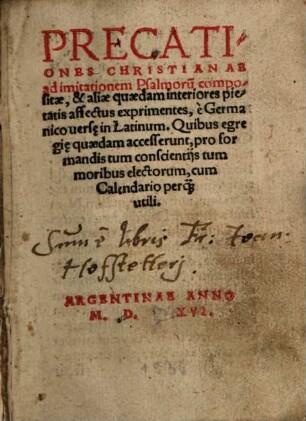 PRECATI-
ONES CHRISTIANAE
ad imitationem Psalmorũ compo-
sitæ, & aliæ quædam interiores pie-
tatis affectus exprimentes, è Germa
nico versę in Latinum. Quibus egre
gię quædam accesserunt, pro for
mandis tum conscientijs tum
moribus electorum, cum
Calendario perq̃
utili.
Sum è libris Fr: Joan
Hoffstetterj.
ARGENTINAE ANNO
M. D. XVI.